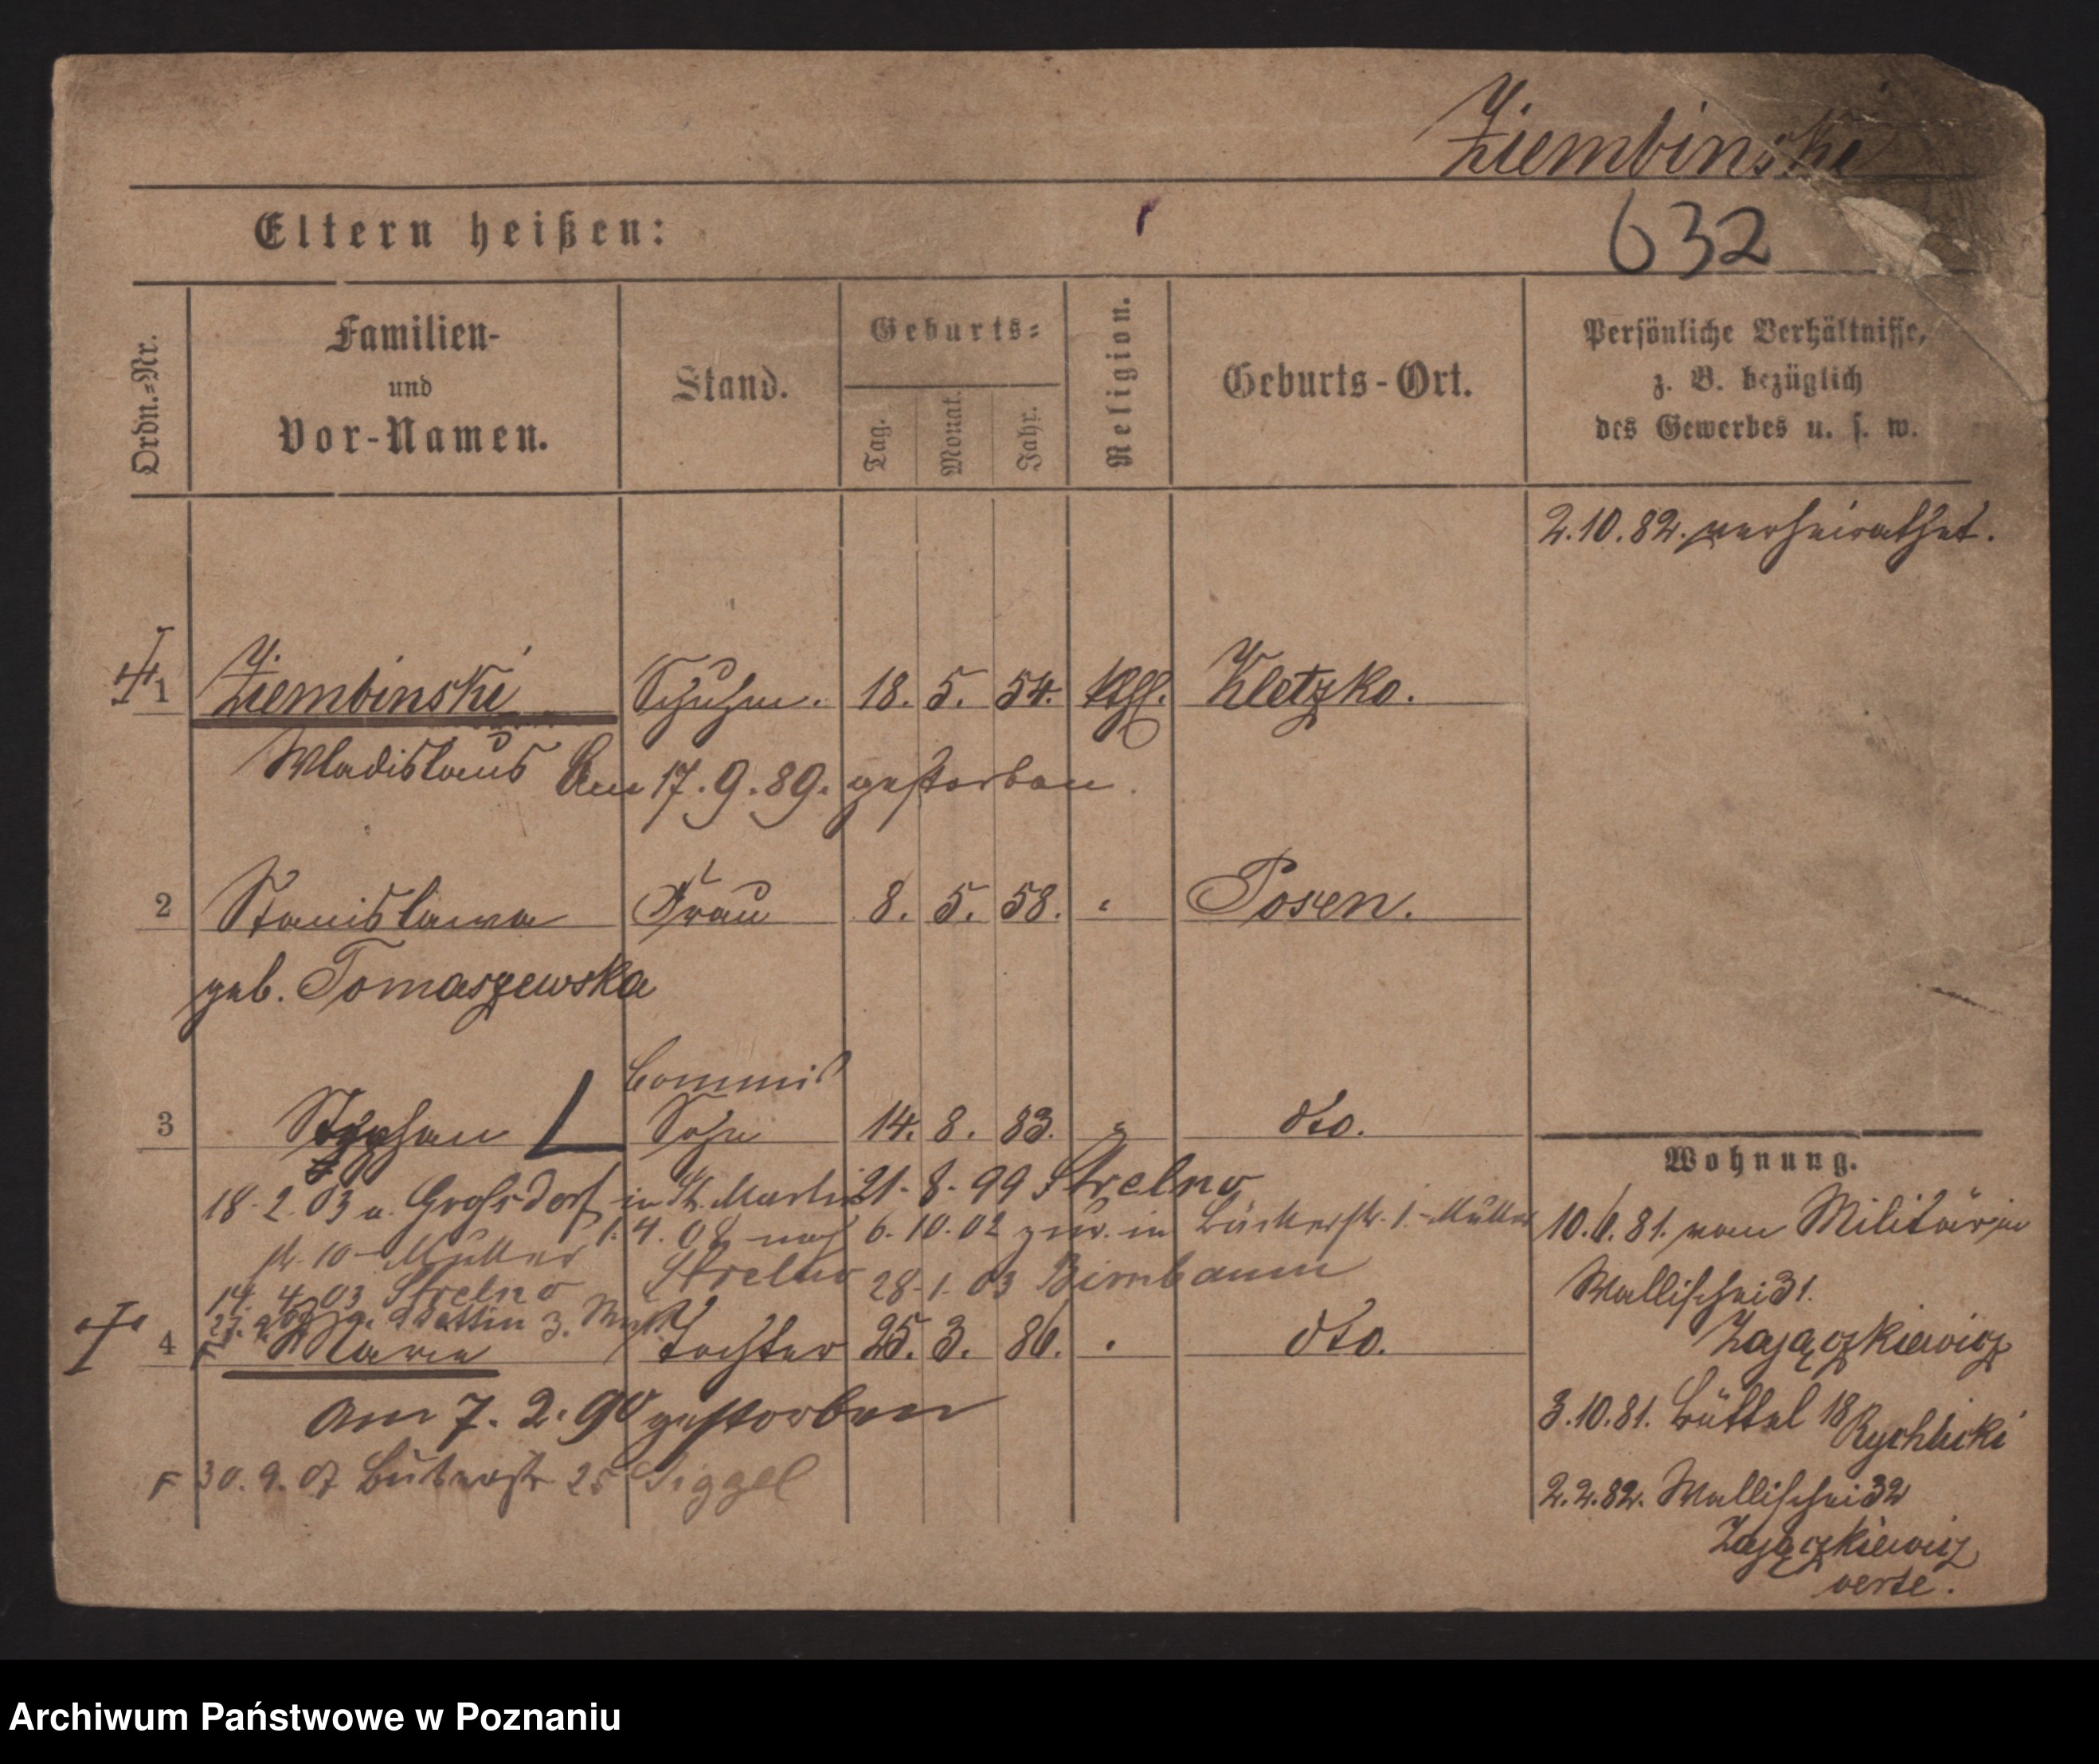 Ziembinski
Eltern heißen:
632
Ordn.=Nr.
Familien-
und
Vor-Namen.
Stand.
Geburts=
Tag.
Monat.
Jahr.
Religion.
Geburts-Ort.
Persönliche Verhältnisse,
z. B. bezüglich
des Gewerbes u. s. w.
2.10.82. verheirathet.
1 Ziembinski Schuhm. 18. 5. 54. Kthl. Kletzko.
Wladislaus Am 17.9.89. gestorben.
2 Stanislawa Frau 8. 5. 58. " Posen.
geb. Tomaszewska
Commis
3 Stephan Sohn 14. 8. 83. " dto.
18.2.03 a. Grossdorf in St. Martin 21.8.99 Strelno
str. 10 Müller 1.4.02 nach 6.10.02 zur. in Bäckerstr. 1. Müller
14.4.03 Strelno Strelno 28.1.03 Birnbaum
4 Marie Tochter 25. 3. 86. " dto.
am 7.2.90 gestorben
F 30.9.07 25 Siggel
Wohnung.
10.6.81. vom Militär in
Wallischei 31.
Zajączkiewicz
3.10.81. Büttel 18 Rychlicki
2.2.82. Wallischei 32
Zajączkiewicz
verte.
Archiwum Państwowe w Poznaniu